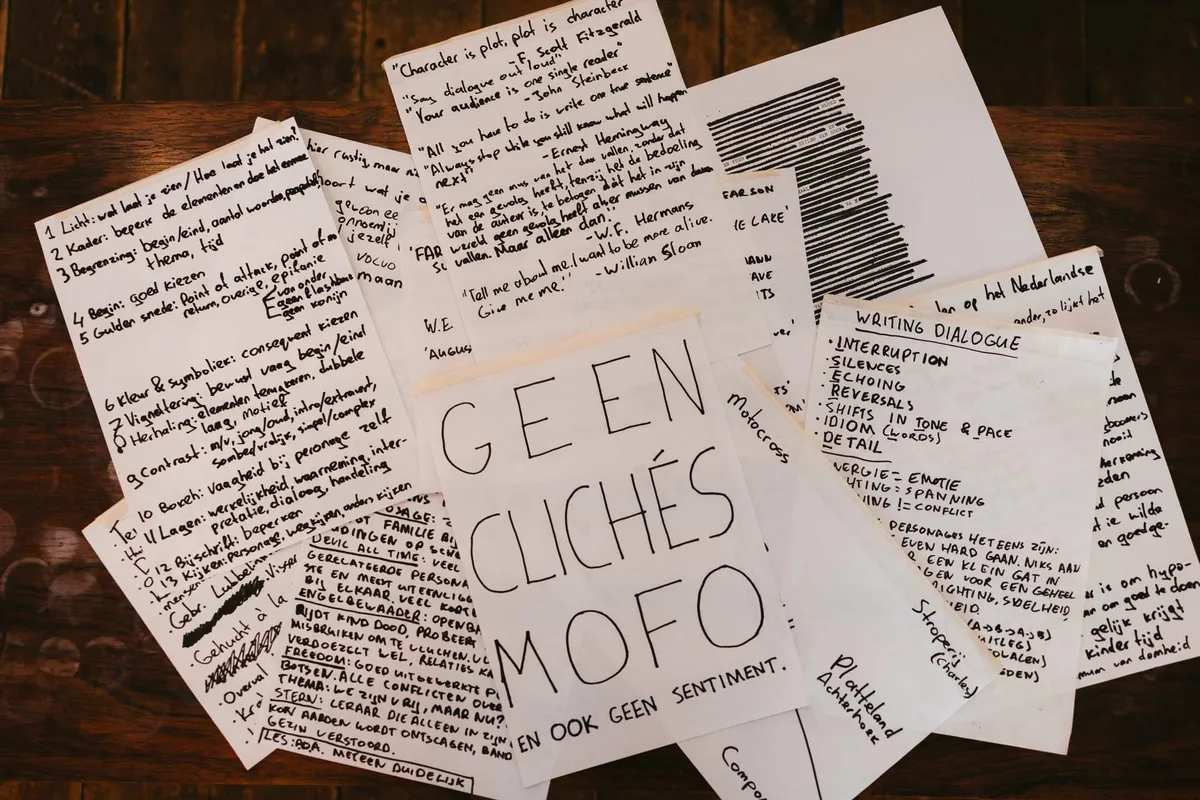 "Character is plot, plot is character"
-F. Scott Fitzgerald
"Say dialogue out loud"
"Your audience is one single reader"
-John Steinbeck
"All you have to do is write one true sentence"
"Always stop while you still know what will happen
next"
-Ernest Hemingway
"Er mag geen mus van het dak vallen, zonder dat
het een gevolg heeft, tenzij het de bedoeling
van de auteur is, te betogen dát het in zijn
wereld geen gevolg heeft als er mussen van daken
vallen. Maar alleen dan."
-W.F. Hermans
"Tell me about me. I want to be more alive.
Give me me."
-Willian Sloan
1 Licht: wat laat je zien / Hoe laat je het zien?
2 Kader: beperk de elementen en doe het ermee
3 Begrenzing: begin/eind, aantal woorden,
thema, tijd
4 Begin: goed kiezen
5 Gulden snede: Point of attack, point of
return, overige, epifanie
van onder
geen flashback
geen konijn
6 Kleur & symboliek: consequent kiezen
7 Vignettering: bewust vaag begin/eind
8 Herhaling: elementen terugkeren, dubbele
laag, motief
9 Contrast: m/v, jong/oud, intro/extravert,
somber/vrolijk, simpel/complex
10 Bokeh: vaagheid bij personage zelf
11 Lagen: werkelijkheid, waarneming, inter-
pretatie, dialoog, handeling
12 Bijschrift: beperken
13 Kijken: personage, wegkijken, anders kijken
hier rustig maar
oort wat je
gewoon
jezelf
VOLVO
maan
'FAR
W.E
'AUGUS
FARSON
LAKE'
GEEN
CLICHÉS
MOFO
EN OOK GEEN SENTIMENT.
mensen
Gebr.
Gehucht à la
Overval
FAMILIE
DINGEN OP
DEVIL ALL TIME: VEEL
GERELATEERDE PERSONA
STE EN MEEST UITEENLIGG
BIJ ELKAAR. VEEL KORTE
ENGELBEWAARDER: OPENBA
RIJDT KIND DOOD, PROBEERT
MISBRUIKEN OM TE VLUCHTEN.
VERDOEZELT WEL, RELATIES KA
FREEDOM: GOED UITGEWERKTE P
BOTSEN. ALLE CONFLICTEN OVER
THEMA: WE ZIJN VRIJ, MAAR NU?
STERN: LERAAR DIE ALLEEN IN ZIJN
KON AARDEN WORDT ONTSLAGEN, BAND
GEZIN VERSTOORD.
LES: ADA. METEEN DUIDELIJK
Motocross
Stroperij
(Charles)
Platteland
Achterhoek
Compo
WRITING DIALOGUE
· INTERRUPTION
· SILENCES
· ECHOING
· REVERSALS
· SHIFTS IN TONE & PACE
· IDIOM (WORDS)
· DETAIL
NERGIE = EMOTIE
HTING = SPANNING
!= CONFLICT
PERSONAGES HET EENS ZIJN:
EVEN HARD GAAN. NIKS AAN
EEN KLEIN GAT IN
GEN VOOR EEN GEHEEL
RICHTING, SNELHEID
EID.
(A→B→A→B)
UITLEG)
op het Nederlandse
ander, zo lijkt het
boomers
nooit
herkenning
eden
persoon
ie wilde
en goedge-
is om hypo-
om goed te doen
gelijk krijgt
kinder tijd
van domheid